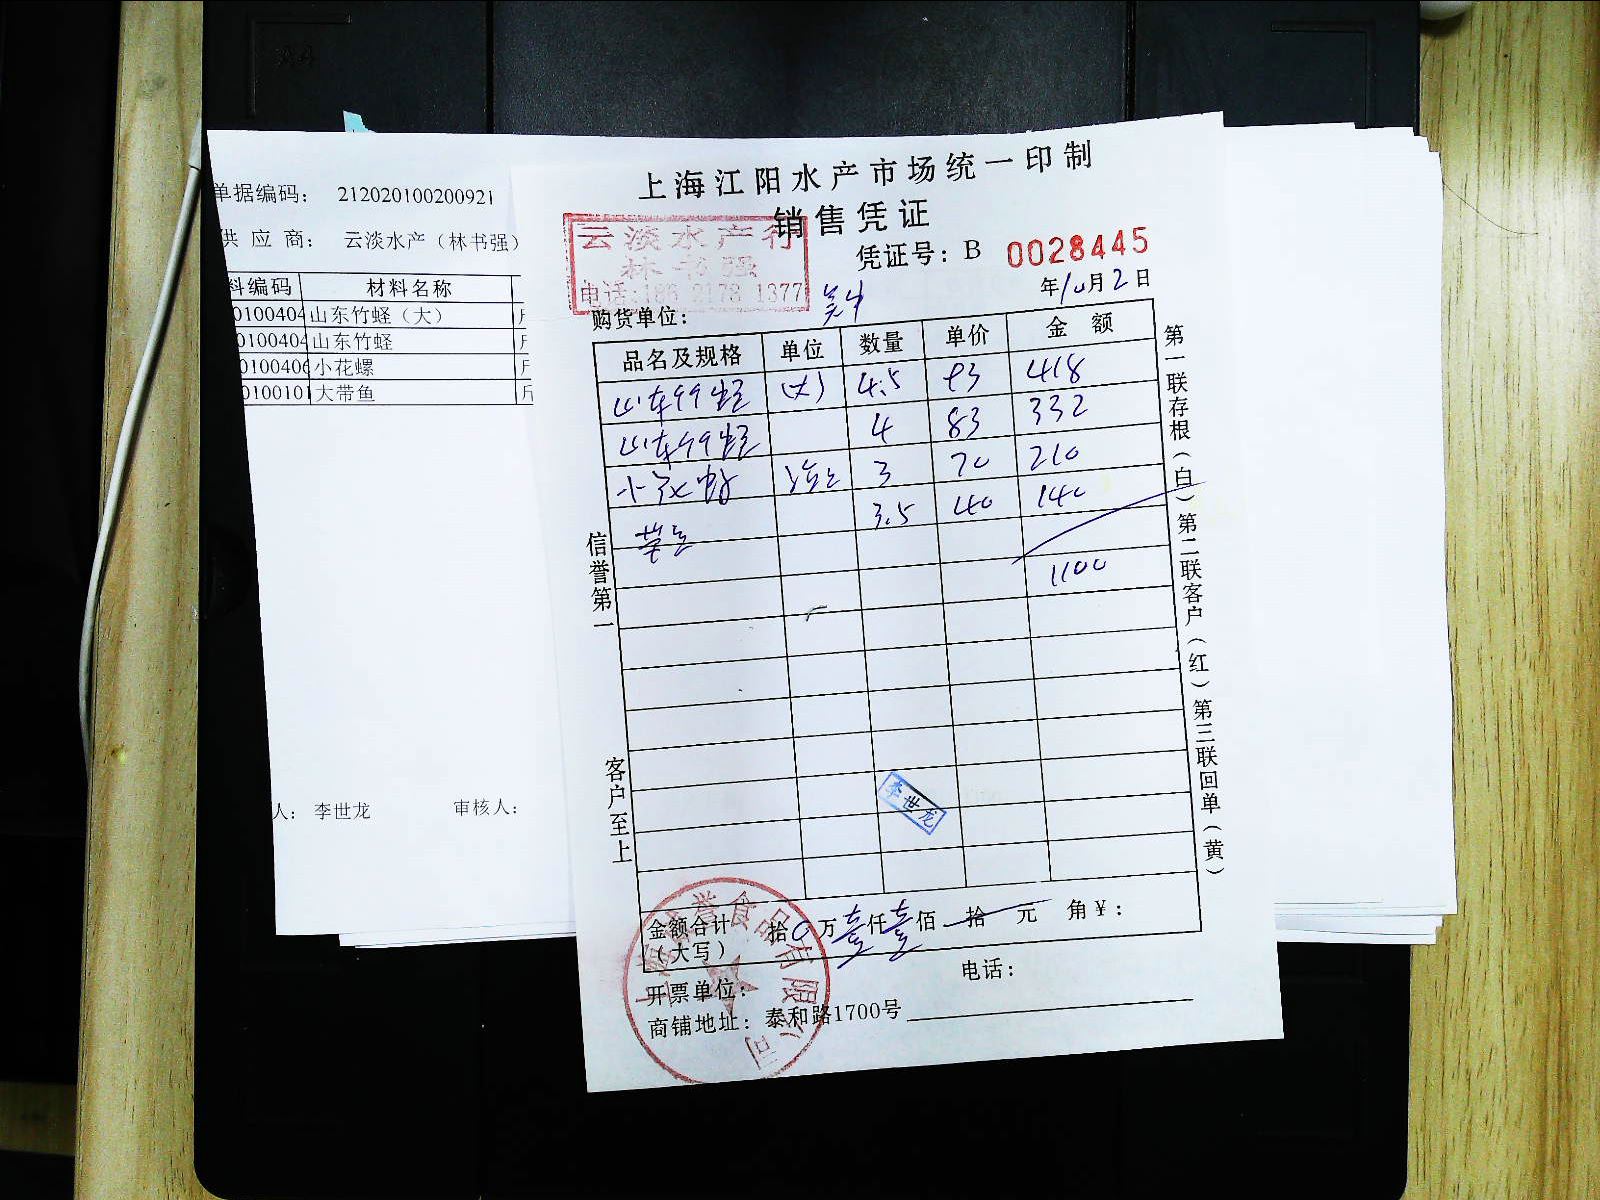 单据编码： 212020100200921
供 应 商： 云淡水产（林书强）
料编码 材料名称
0100404 山东竹蛏（大） 斤
0100404 山东竹蛏 斤
0100406 小花螺 斤
0100101 大带鱼 斤
人： 李世龙 审核人：
上海江阳水产市场统一印制
销售凭证
云淡水产行
林书强
电话:186 2173 1377
凭证号：B 0028445
年10月2日
购货单位：
品名及规格 单位 数量 单价 金 额
山东竹蛏 (大) 4.5 93 418
山东竹蛏 4 83 332
小花螺 3 70 210
3.5 40 140
1100
信誉第一
客户至上
第一联存根（白）第二联客户（红）第三联回单（黄）
李世龙
金额合计（大写） 拾0万壹仟壹佰 拾 元 角￥：
开票单位： 电话：
商铺地址：泰和路1700号
誉食品有限公司